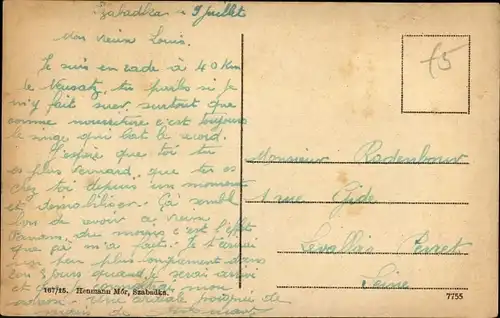 Szabadka - 9 juillet
Mon vieux Louis.
Je suis en rade à 40 Km
de Neusatz, tu parles si je
m'y fait suer, surtout que
comme nourriture c'est toujours
le singe qui bat le record.
J'espère que toi tu
es plus veinard, que tu es
chez toi depuis un moment
et démobiliser. Ça semble
bon de revoir a vieux
Panam, du moins c'est l'effet
que ça m'a fait. Je t'écrirai
un peu plus longuement dans
2 ou 3 jours quand je serai arrivé
et que je connaîtrai mon
Une cordiale poignée de
mains de
Monsieur Radenbour
1 rue Gide
Levallois Perret
Seine
f5
167/15. Heumann Mór, Szabadka.
7755